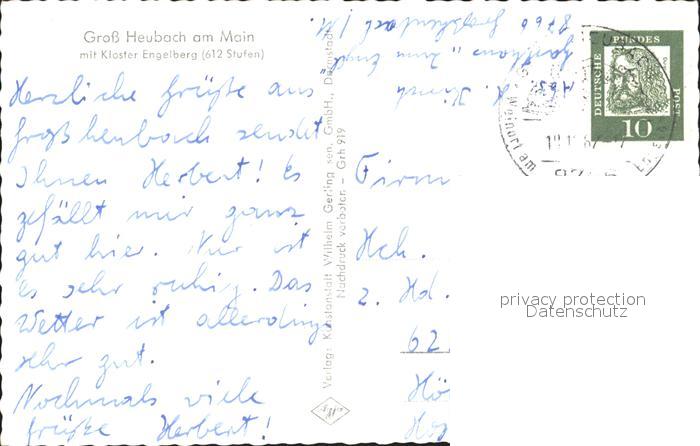 Groß Heubach am Main
mit Kloster Engelberg (612 Stufen)
Herzliche Grüße aus
Großheubach sendet
Ihnen Herbert! Es
gefällt mir ganz
gut hier. Nur ist
es sehr ruhig. Das
Wetter ist allerdings
sehr gut.
Nochmals viele
Grüße Herbert!
Verlag: Kunstanstalt Wilhelm Gerling sen. GmbH., Darmstadt
Nachdruck verboten – Grh 919
Abs.
8766 Großheubach / M.
DEUTSCHE
BUNDES
POST
10
Firm
Hch.
z. Hd.
62
privacy protection
Datenschutz